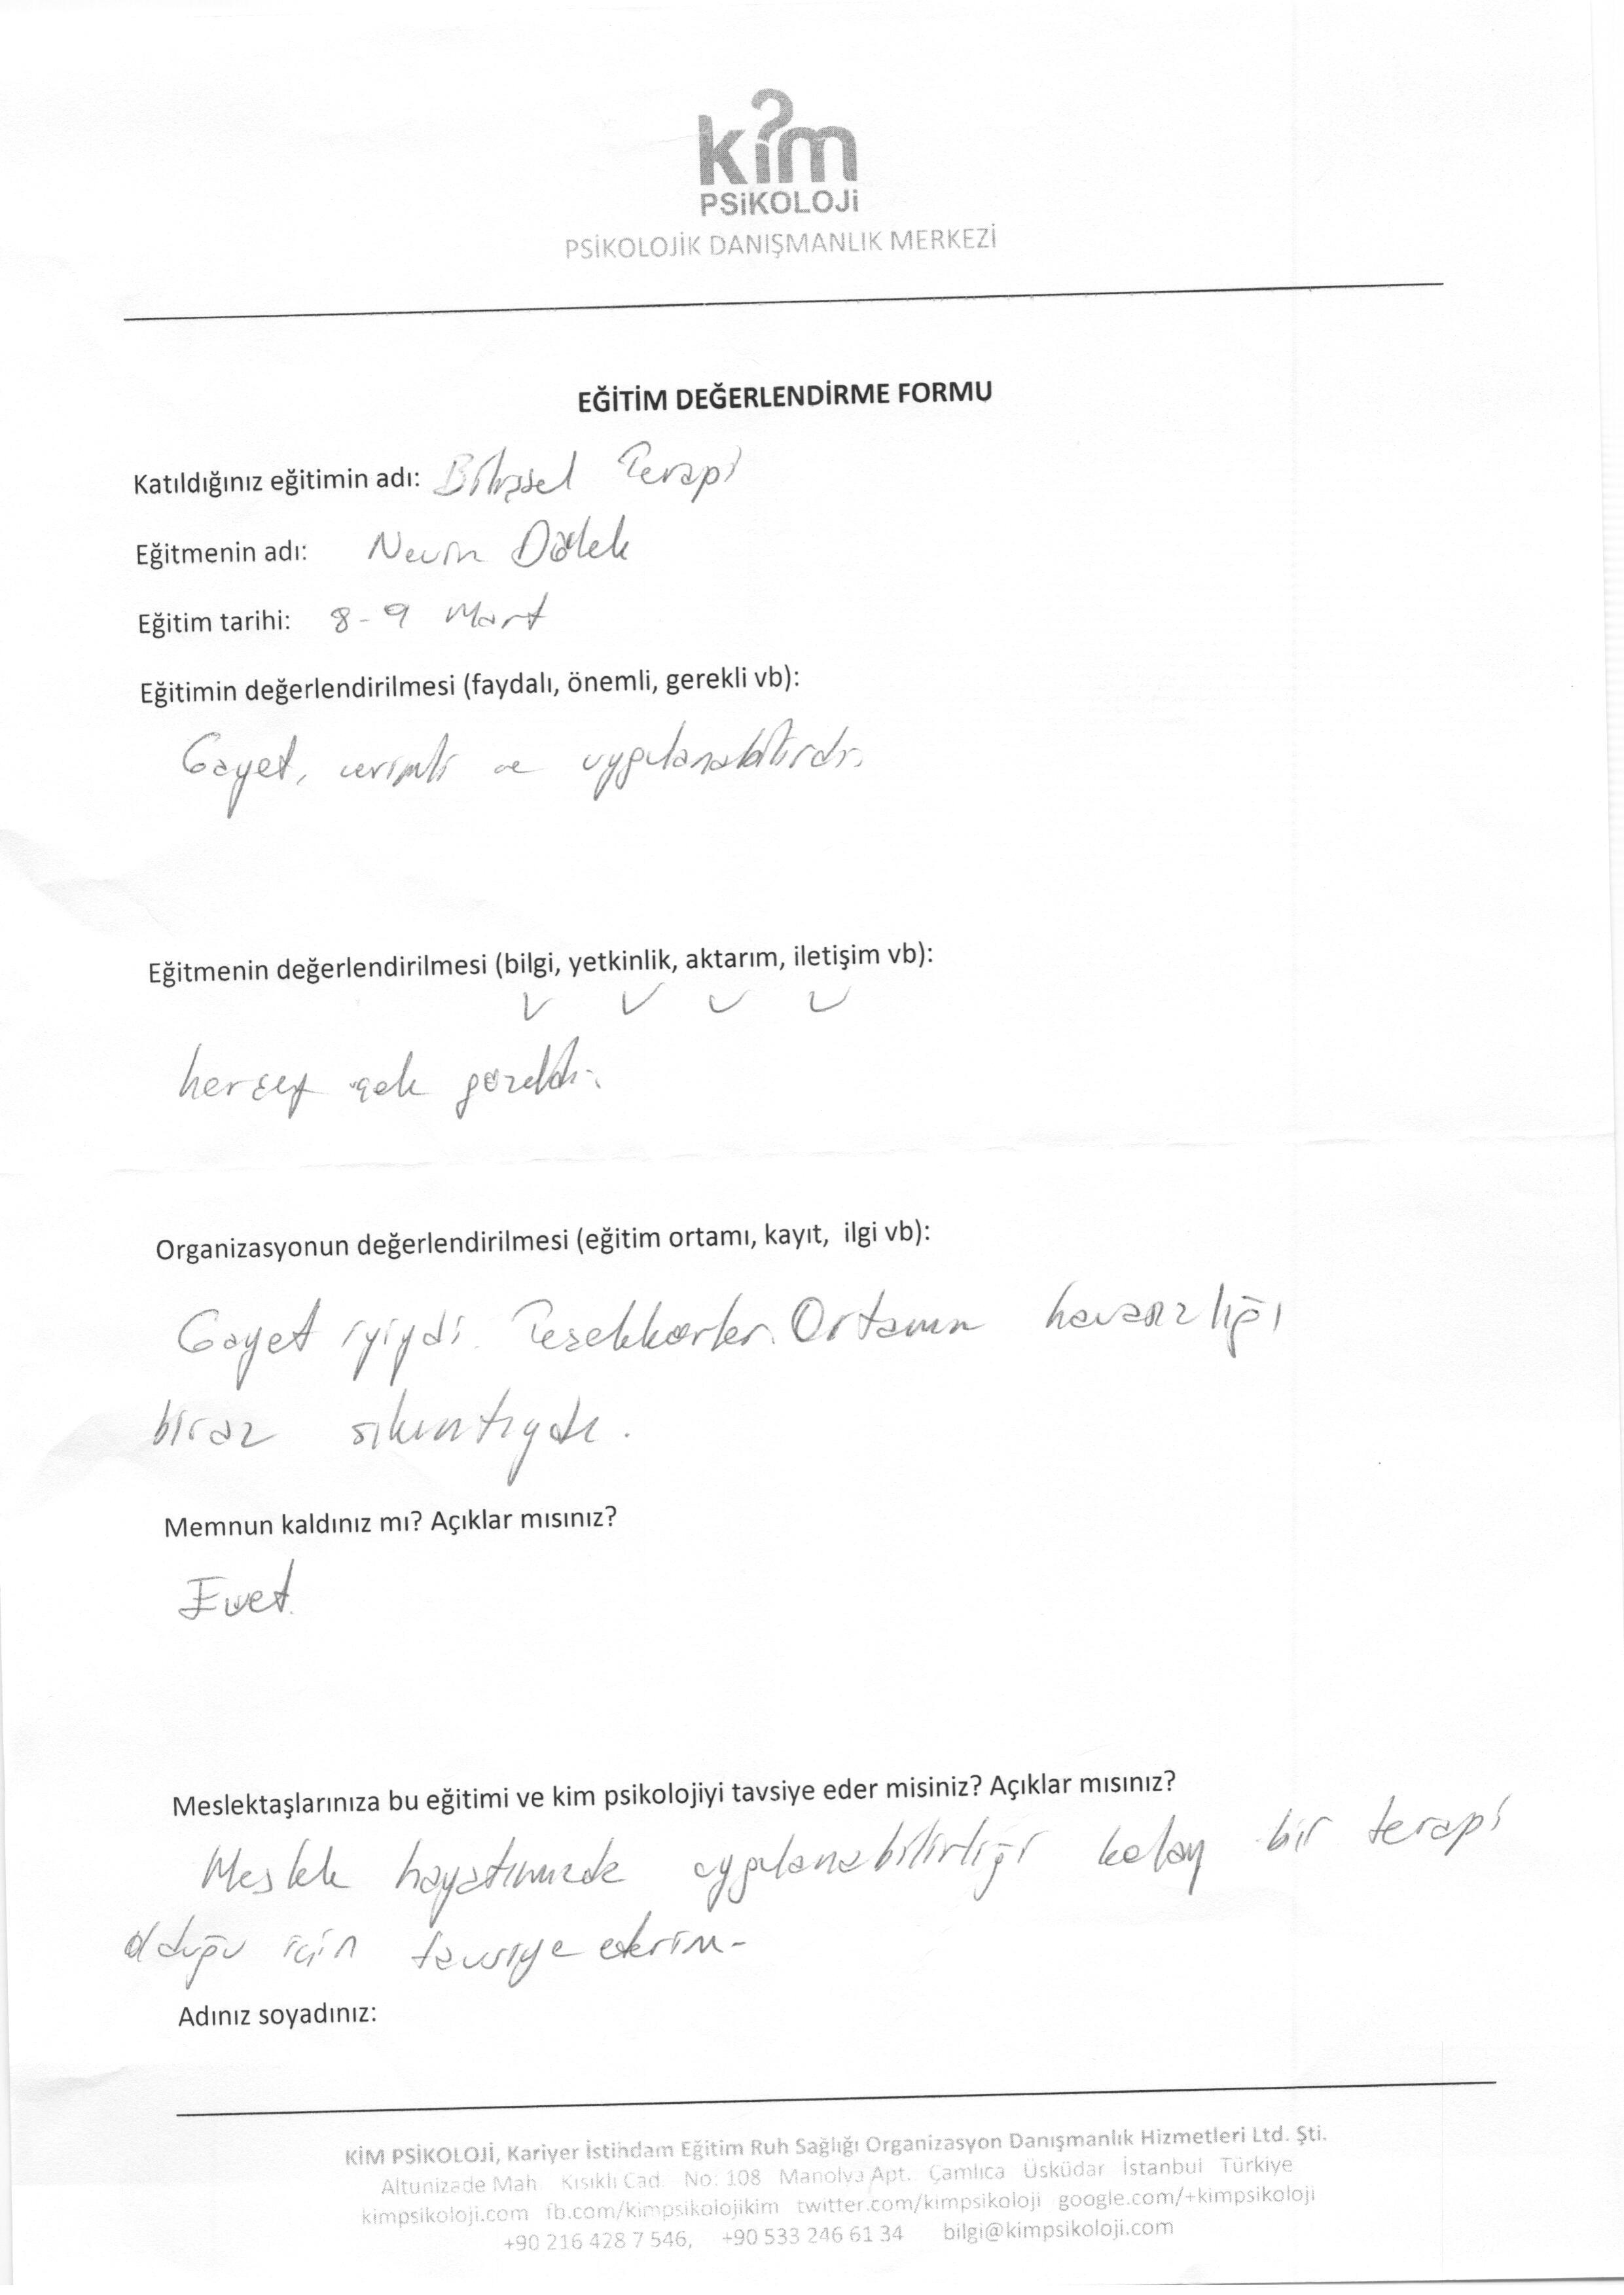 kim
PSİKOLOJİ
PSİKOLOJİK DANIŞMANLIK MERKEZİ
EĞİTİM DEĞERLENDİRME FORMU
Katıldığınız eğitimin adı: Bilişsel Terapi
Eğitmenin adı: Nevin Dölek
Eğitim tarihi: 8-9 Mart
Eğitimin değerlendirilmesi (faydalı, önemli, gerekli vb):
Gayet, verimli ve uygulanabilirdi.
Eğitmenin değerlendirilmesi (bilgi, yetkinlik, aktarım, iletişim vb):
herşey çok güzeldi.
Organizasyonun değerlendirilmesi (eğitim ortamı, kayıt, ilgi vb):
Gayet iyiydi. Teşekkürler. Ortamın havasızlığı
biraz sıkıntıydı.
Memnun kaldınız mı? Açıklar mısınız?
Evet.
Meslektaşlarınıza bu eğitimi ve kim psikolojiyi tavsiye eder misiniz? Açıklar mısınız?
Meslek hayatımızda uygulanabilirliği kolay bir terapi
olduğu için tavsiye ederim-
Adınız soyadınız:
KİM PSİKOLOJİ, Kariyer İstihdam Eğitim Ruh Sağlığı Organizasyon Danışmanlık Hizmetleri Ltd. Şti.
Altunizade Mah Kısıklı Cad. No: 108 Manolya Apt. Çamlıca Üsküdar İstanbul Türkiye
kimpsikoloji.com fb.com/kimpsikolojikim twitter.com/kimpsikoloji google.com/+kimpsikoloji
+90 216 428 7 546, +90 533 246 61 34 bilgi@kimpsikoloji.com